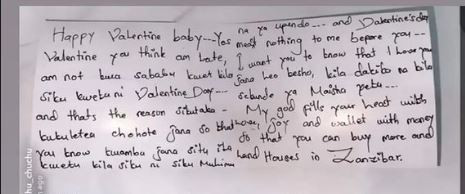 Happy Valentine baby---Yes
na ya upendo --- and Valentine's day
Valentine you think am late,
meant nothing to me before you ---
am not bura sababu kwet kila
I want you to know that I love you
siku kwetu ni Valentine Day---
jana leo kesho, kila dakika na kila
and thats the reason sikutaka -
sekunde ya Maisha yetu ---
kukuletea chohote jana so that
My god fills your heart with
you know kwamba jana situ ila
love, joy and wallet with money
kwetu kila siku ni siku Muhimu
so that you can buy more and
Land Houses in Zanzibar.
hu_chuchu
ago